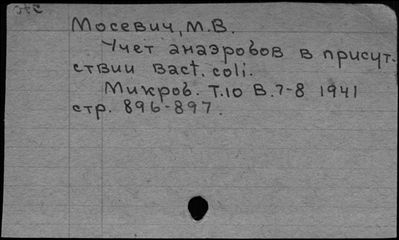 Мосевич, М.В.
Учет анаэробов в присут-
ствии Bact. coli.
Микров. Т.10 В.7-8 1941
стр. 896-897.